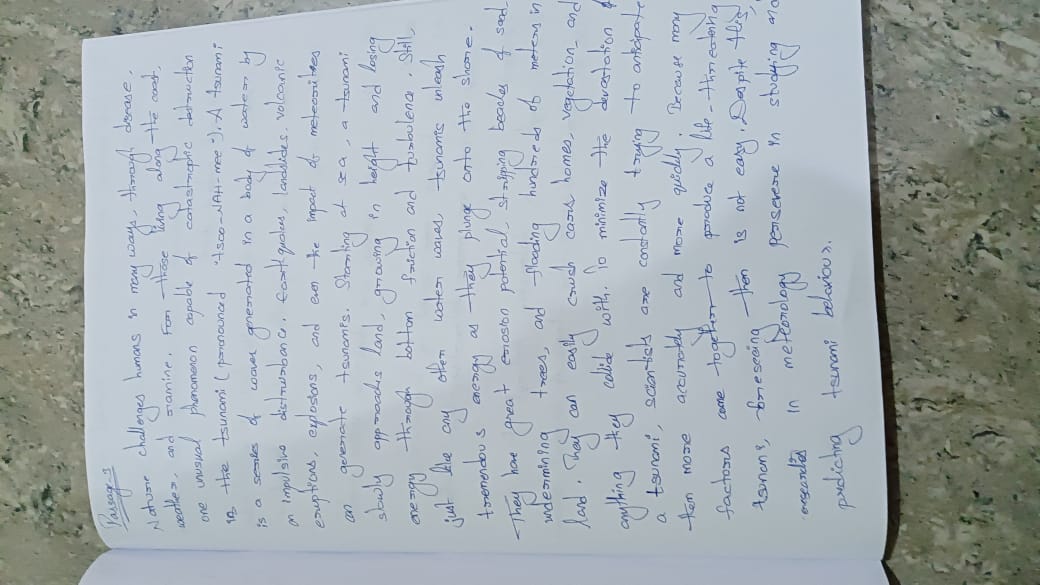 Passage-1
Nature challenges humans in many ways, through disease,
weather, and famine. For those living along the coast,
one unusual phenomenon capable of catastrophic destruction
is the tsunami (pronounced "tsoo-NAH-mee"). A tsunami
is a series of waves generated in a body of water by
an impulsive disturbance. Earthquakes, landslides, volcanic
eruptions, explosions, and even the impact of meteorites
can generate tsunamis. Starting at sea, a tsunami
slowly approaches land, growing in height and losing
energy through bottom friction and turbulence. Still,
just like any other water waves, tsunamis unleash
tremendous energy as they plunge onto the shore.
They have great erosion potential, stripping beaches of sand,
undermining trees, and flooding hundreds of meters in
land. They can easily crush cars, homes, vegetation, and
anything they collide with. To minimize the devastation of
a tsunami, scientists are constantly trying to anticipate
them more accurately and more quickly. Because many
factors come together to produce a life-threatening
tsunami, foreseeing them is not easy. Despite this,
in meteorology persevere in studying and
predicting tsunami behaviour.